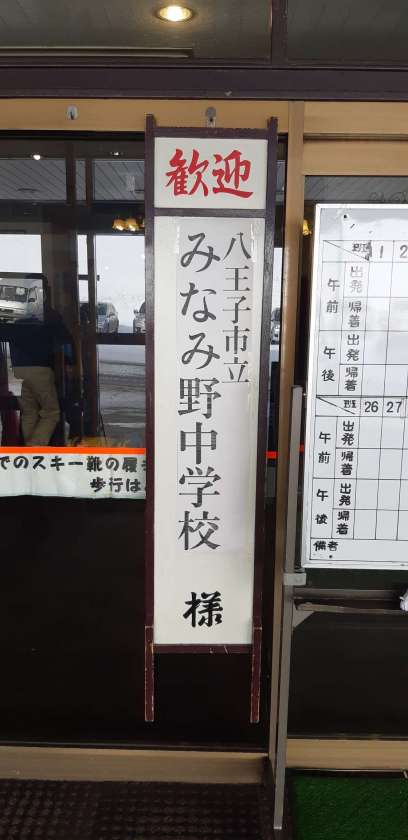 歓迎
八王子市立
みなみ野中学校
様
でのスキー靴の履
歩行は
班 1 2
午前 出発
帰着
午後 出発
帰着
班 26 27
午前 出発
帰着
午後 出発
帰着
備考